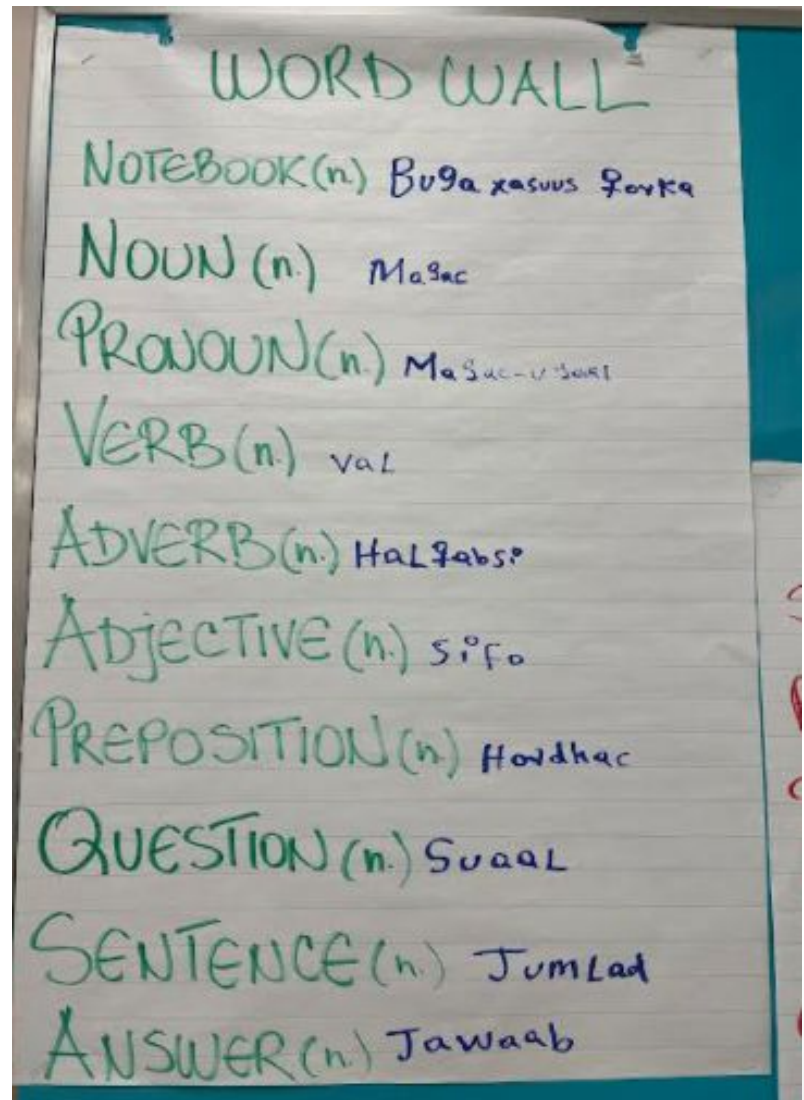 WORD WALL
NOTEBOOK (n.) Buga xasuus qorka
NOUN (n.) Magac
PRONOUN (n.)
VERB (n.) val
ADVERB (n.) Halqabsi
ADJECTIVE (n.) sifo
PREPOSITION (n.) Hordhac
QUESTION (n.) Suaal
SENTENCE (n.) Jumlad
ANSWER (n.) Jawaab